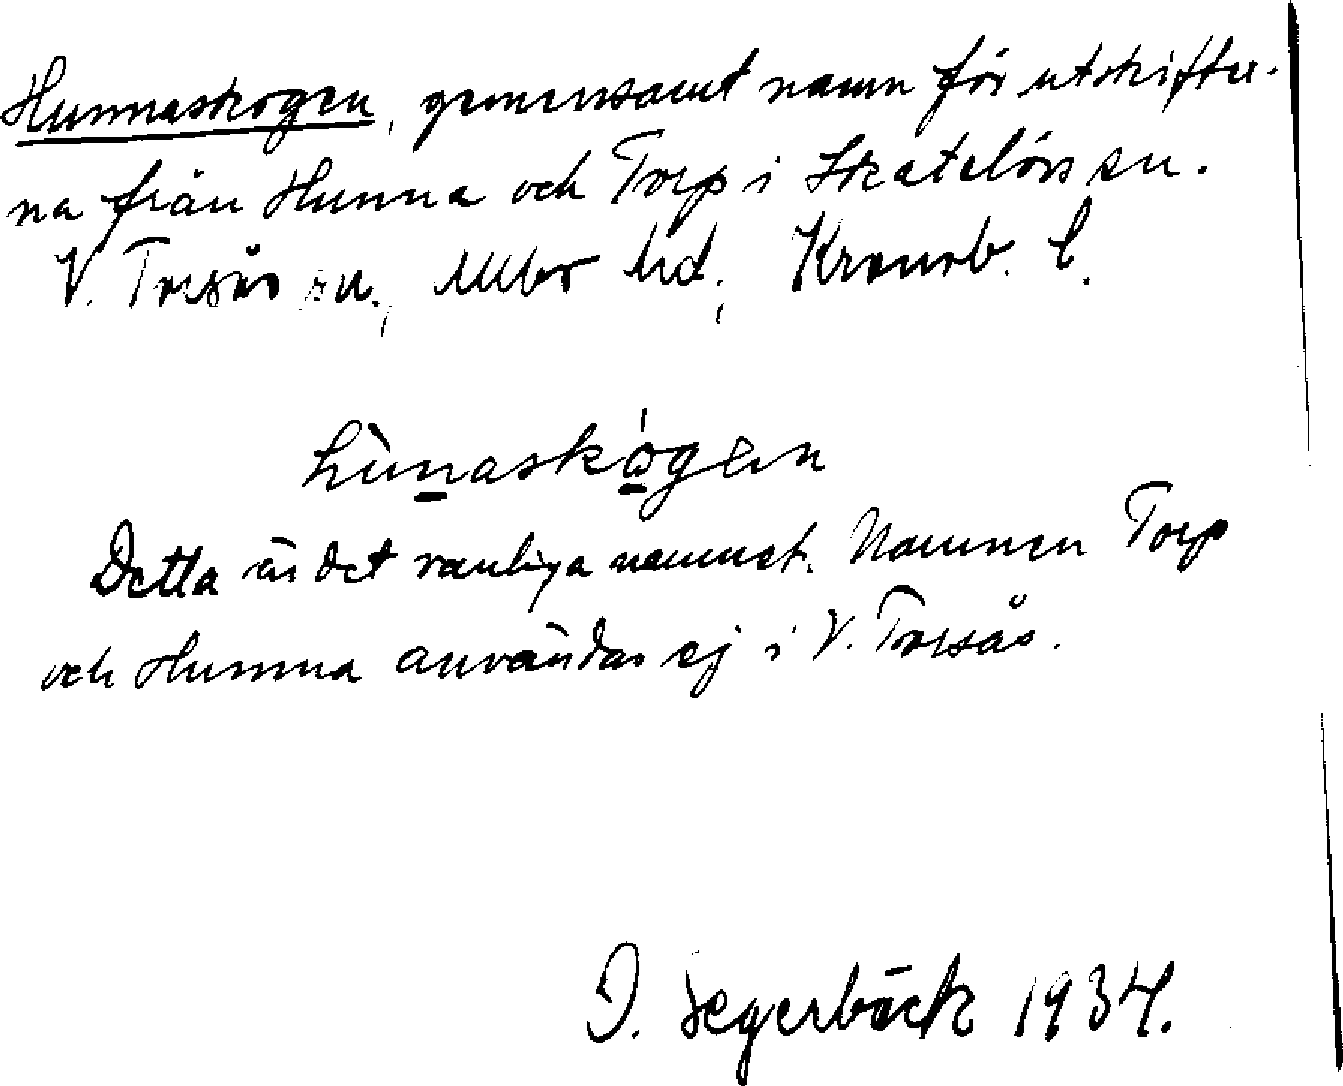 Hunnaskogen, gemensamt namn för utskifter-
na från Hunna och Torp i Skatelövs sn.
V. Torsås sn., Allbo hd, Kronob. l.
hùnaskógen
Detta är det vanliga namnet. Namnen Torp
och Hunna användas ej i V. Torsås.
I. Segerbäck 1934.